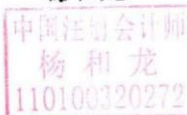 中国注册会计师
杨和龙
110100320272